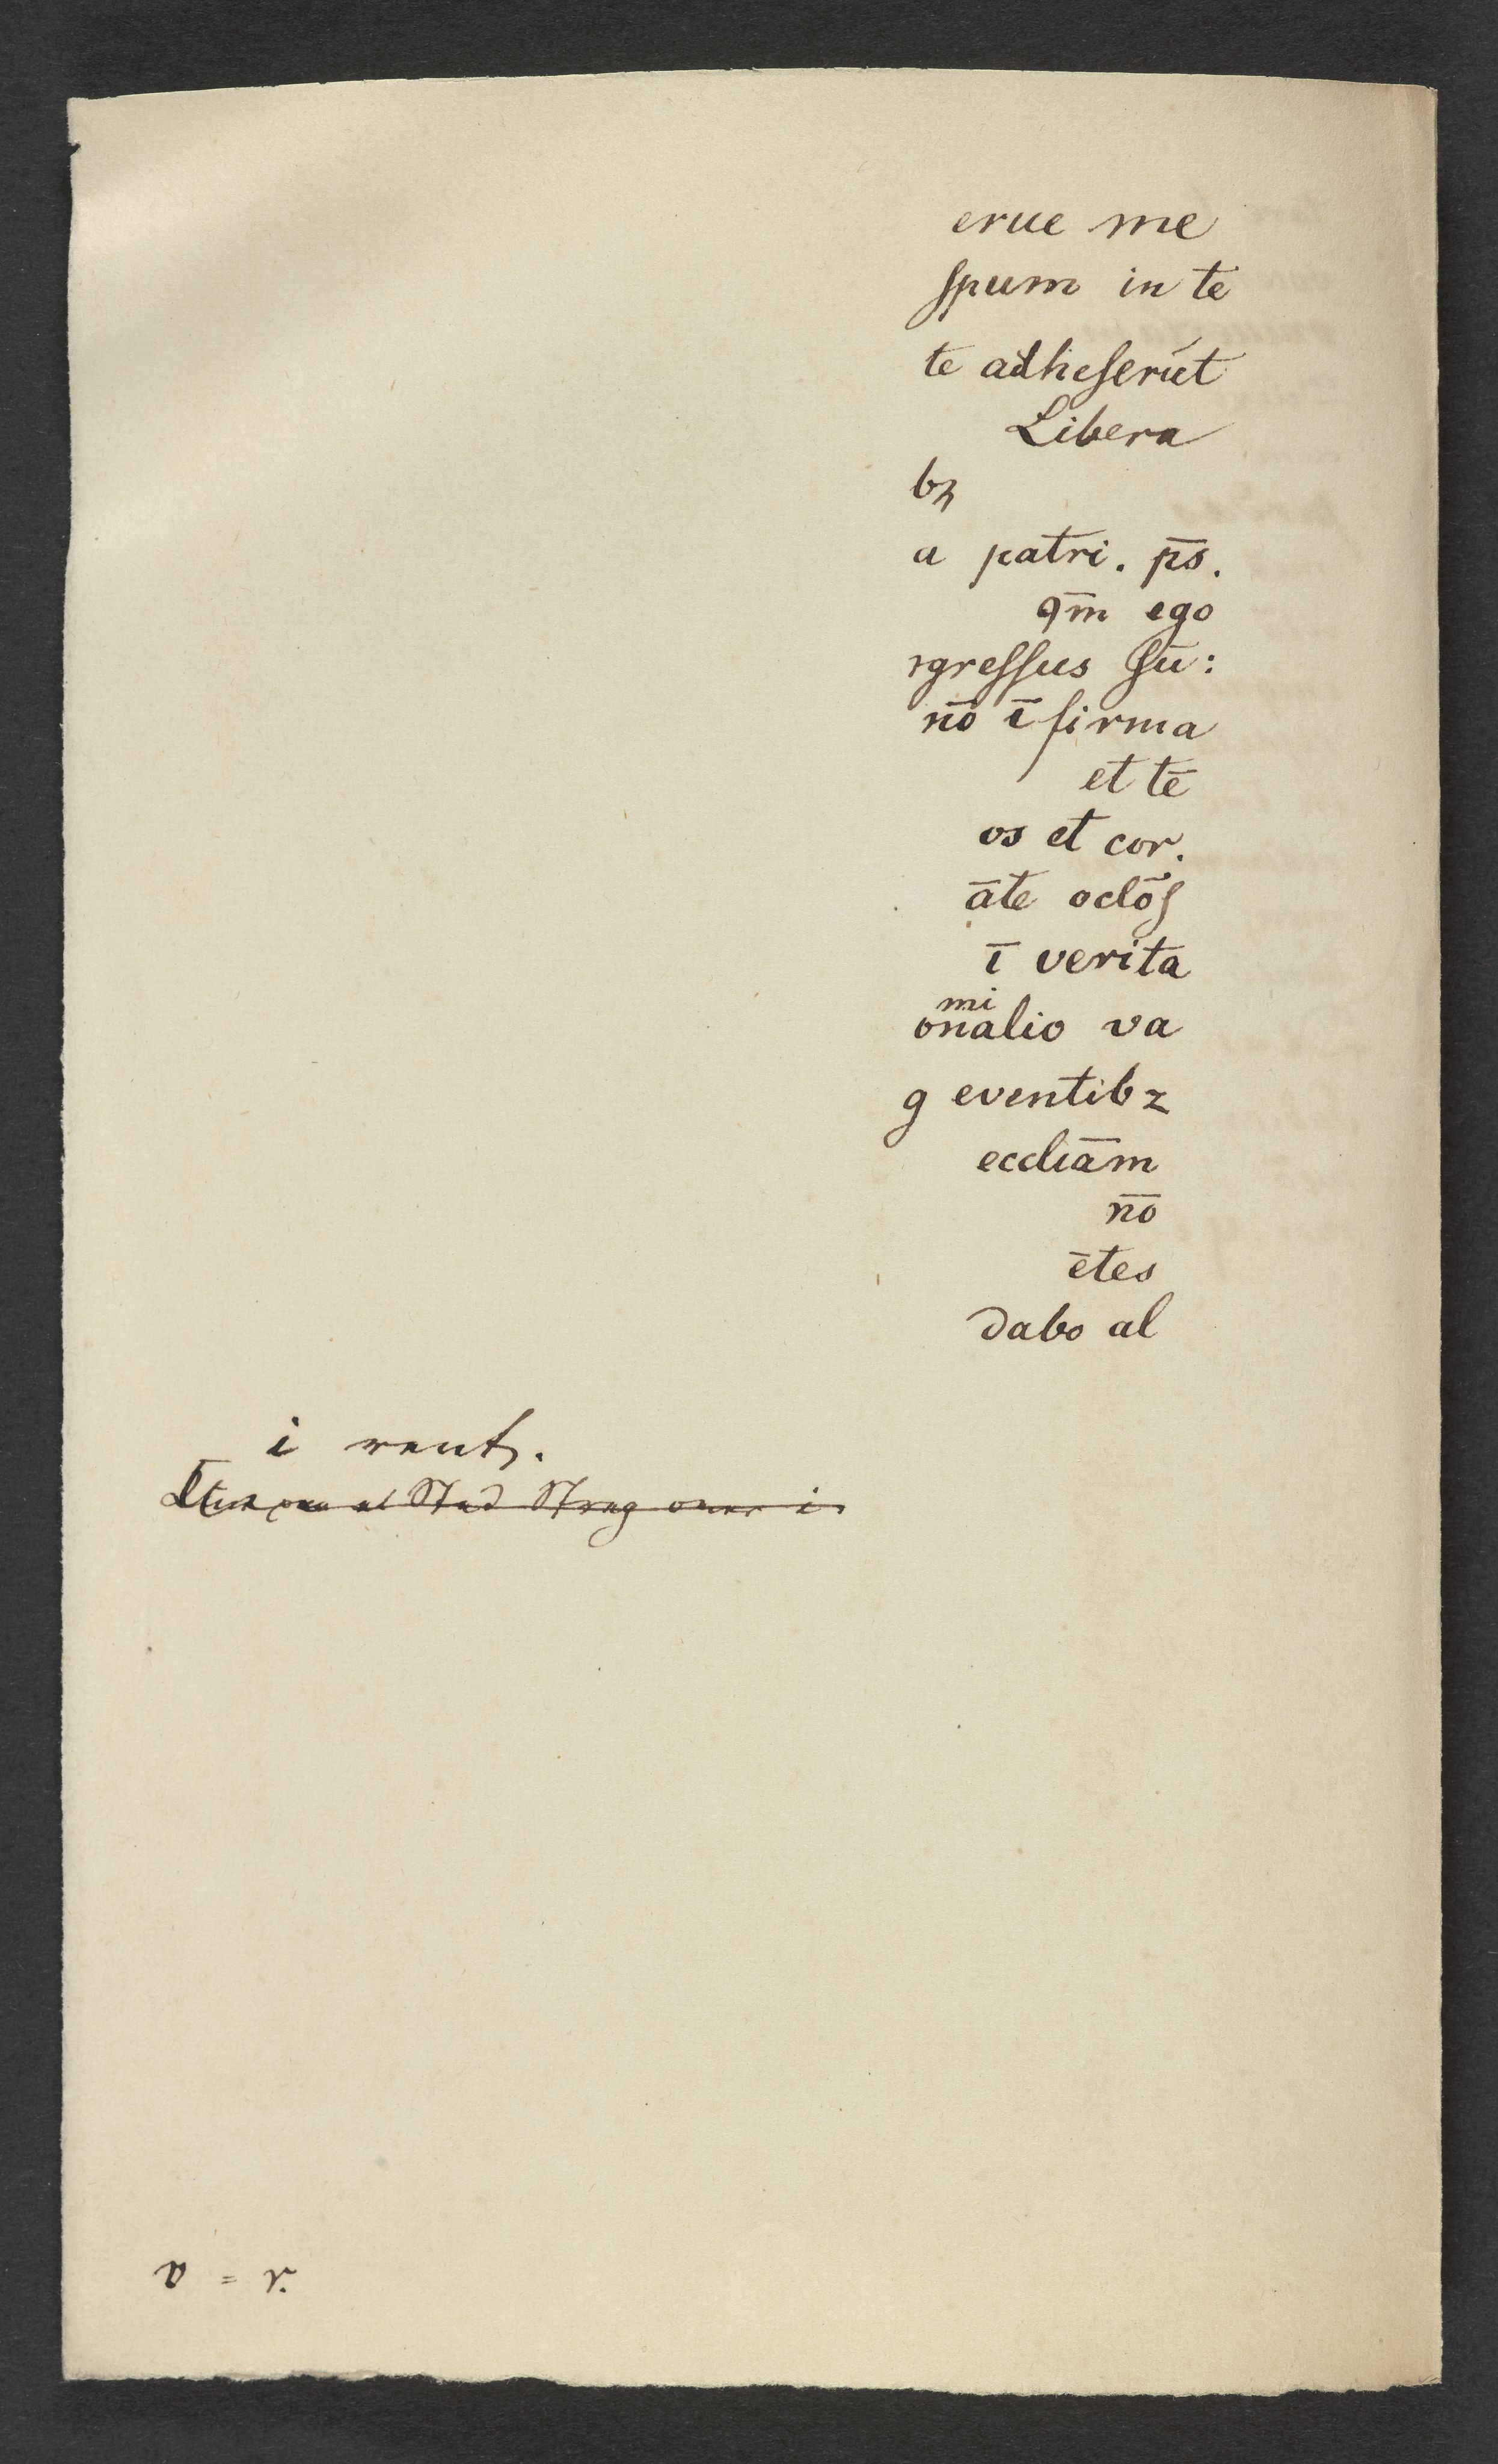 erue me
ſpum in te
te adheſerút
Libera
bȝ
a patri. p̄s.
qm̄ ego
greſſus ſū:
nō ī firma
et tē
os et cor.
āte oclōſ
ī verita
mi
onalio va
g eventibz
eccliām
nō
ētes
dabo al
i
v = r.